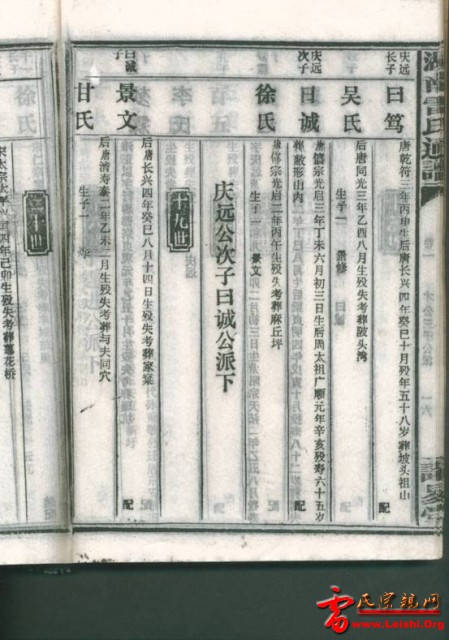 湖南雷氏通譜
卷一
一六
庆远长子
曰笃
唐乾符三年丙申生后唐长兴四年癸巳十月殁年五十八岁葬坡头祖山
配
吴氏
后唐同光三年乙酉八月生殁失考葬陂头湾
生子二 景修
庆远次子
曰诚
唐僖宗光启三年丁未六月初三日生后周太祖广顺元年辛亥殁寿六十五岁
葬敷形山内
配
徐氏
唐僖宗光启二年丙午生殁失考葬麻丘坪
生子二 景文
庆远公次子曰诚公派下
十九世
曰诚子
景文
后唐长兴四年癸巳八月十四日生殁失考葬家寨
配
甘氏
后唐清泰二年乙未二月生殁失考葬与夫同穴
生子一
二十世
四年己卯生殁失考葬墓花桥
雷氏宗亲网
www.Leishi.Org